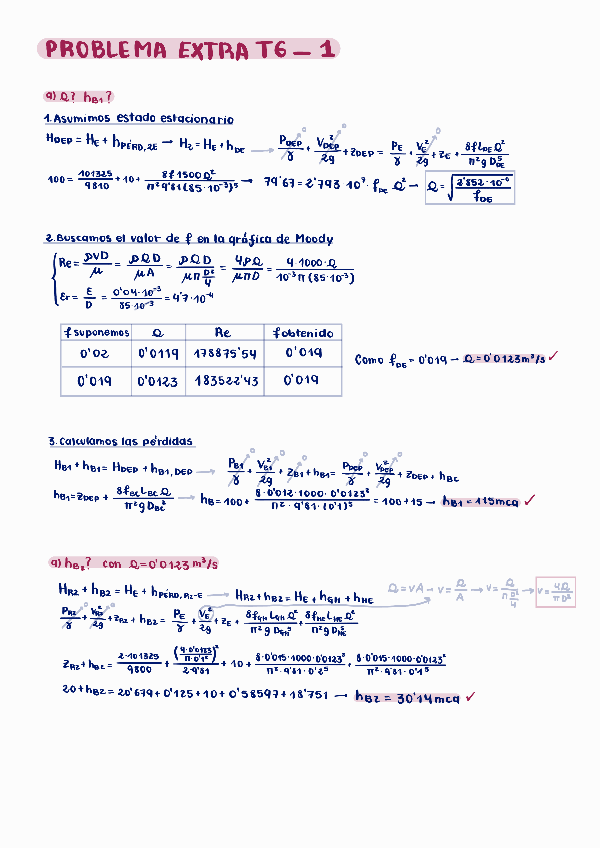 PROBLEMA EXTRA T6 - 1
a) Q? hB1?
1. Asumimos estado estacionario
HDEP = HE + hPÉRD,2E → H2 = HE + hDE → PDEP/γ + V²DEP/2g + zDEP = PE/γ + VE²/2g + zE + 8fLDE Q²/π²g D⁵DE
0 0 0
100 = 101325/9810 + 10 + 8f1500Q²/π²9'81(85·10⁻³)⁵ → 79'67 = 2'793·10⁷·fDE Q² → Q = √(2'852·10⁻⁶/fDE)
2. Buscamos el valor de f en la gráfica de Moody
Re = ρVD/μ = ρQD/μA = ρQD/μπD²/4 = 4ρQ/μπD = 4·1000·Q/10⁻³π(85·10⁻³)
Er = E/D = 0'04·10⁻³/85·10⁻³ = 4'7·10⁻⁴
f suponemos Q Re f obtenido
0'02 0'0119 178875'54 0'019
0'019 0'0123 183522'43 0'019
Como fDE = 0'019 → Q = 0'0123 m³/s ✓
3. Calculamos las pérdidas
HB1 + hB1 = HDEP + hB1,DEP → PB1/γ + V²B1/2g + zB1 + hB1 = PDEP/γ + V²DEP/2g + zDEP + hBC
0 0 0 0 0
hB1 = zDEP + 8fBC LBC Q/π²g DBC⁵ → hB = 100 + 8·0'012·1000·0'0123²/π²·9'81·(0'1)⁵ = 100 + 15 → hB1 = 115mca ✓
a) hB2? con Q = 0'0123 m³/s
HR2 + hB2 = HE + hPÉRD,R2-E → HR2 + hB2 = HE + hGH + hHE
Q = vA → v = Q/A → v = Q/πD²/4 → v = 4Q/πD²
PR2/γ + V²R2/2g + zR2 + hB2 = PE/γ + VE²/2g + zE + 8fGH LGH Q²/π²g DGH⁵ + 8fHE LHE Q²/π²g D⁵HE
0 0
zR2 + hB2 = 2·101325/9800 + (4·0'0123/π·0'1²)²/2·9'81 + 10 + 8·0'015·1000·0'0123²/π²·9'81·0'2⁵ + 8·0'015·1000·0'0123²/π²·9'81·0'1⁵
20 + hB2 = 20'679 + 0'125 + 10 + 0'58597 + 18'751 → hB2 = 30'14mca ✓